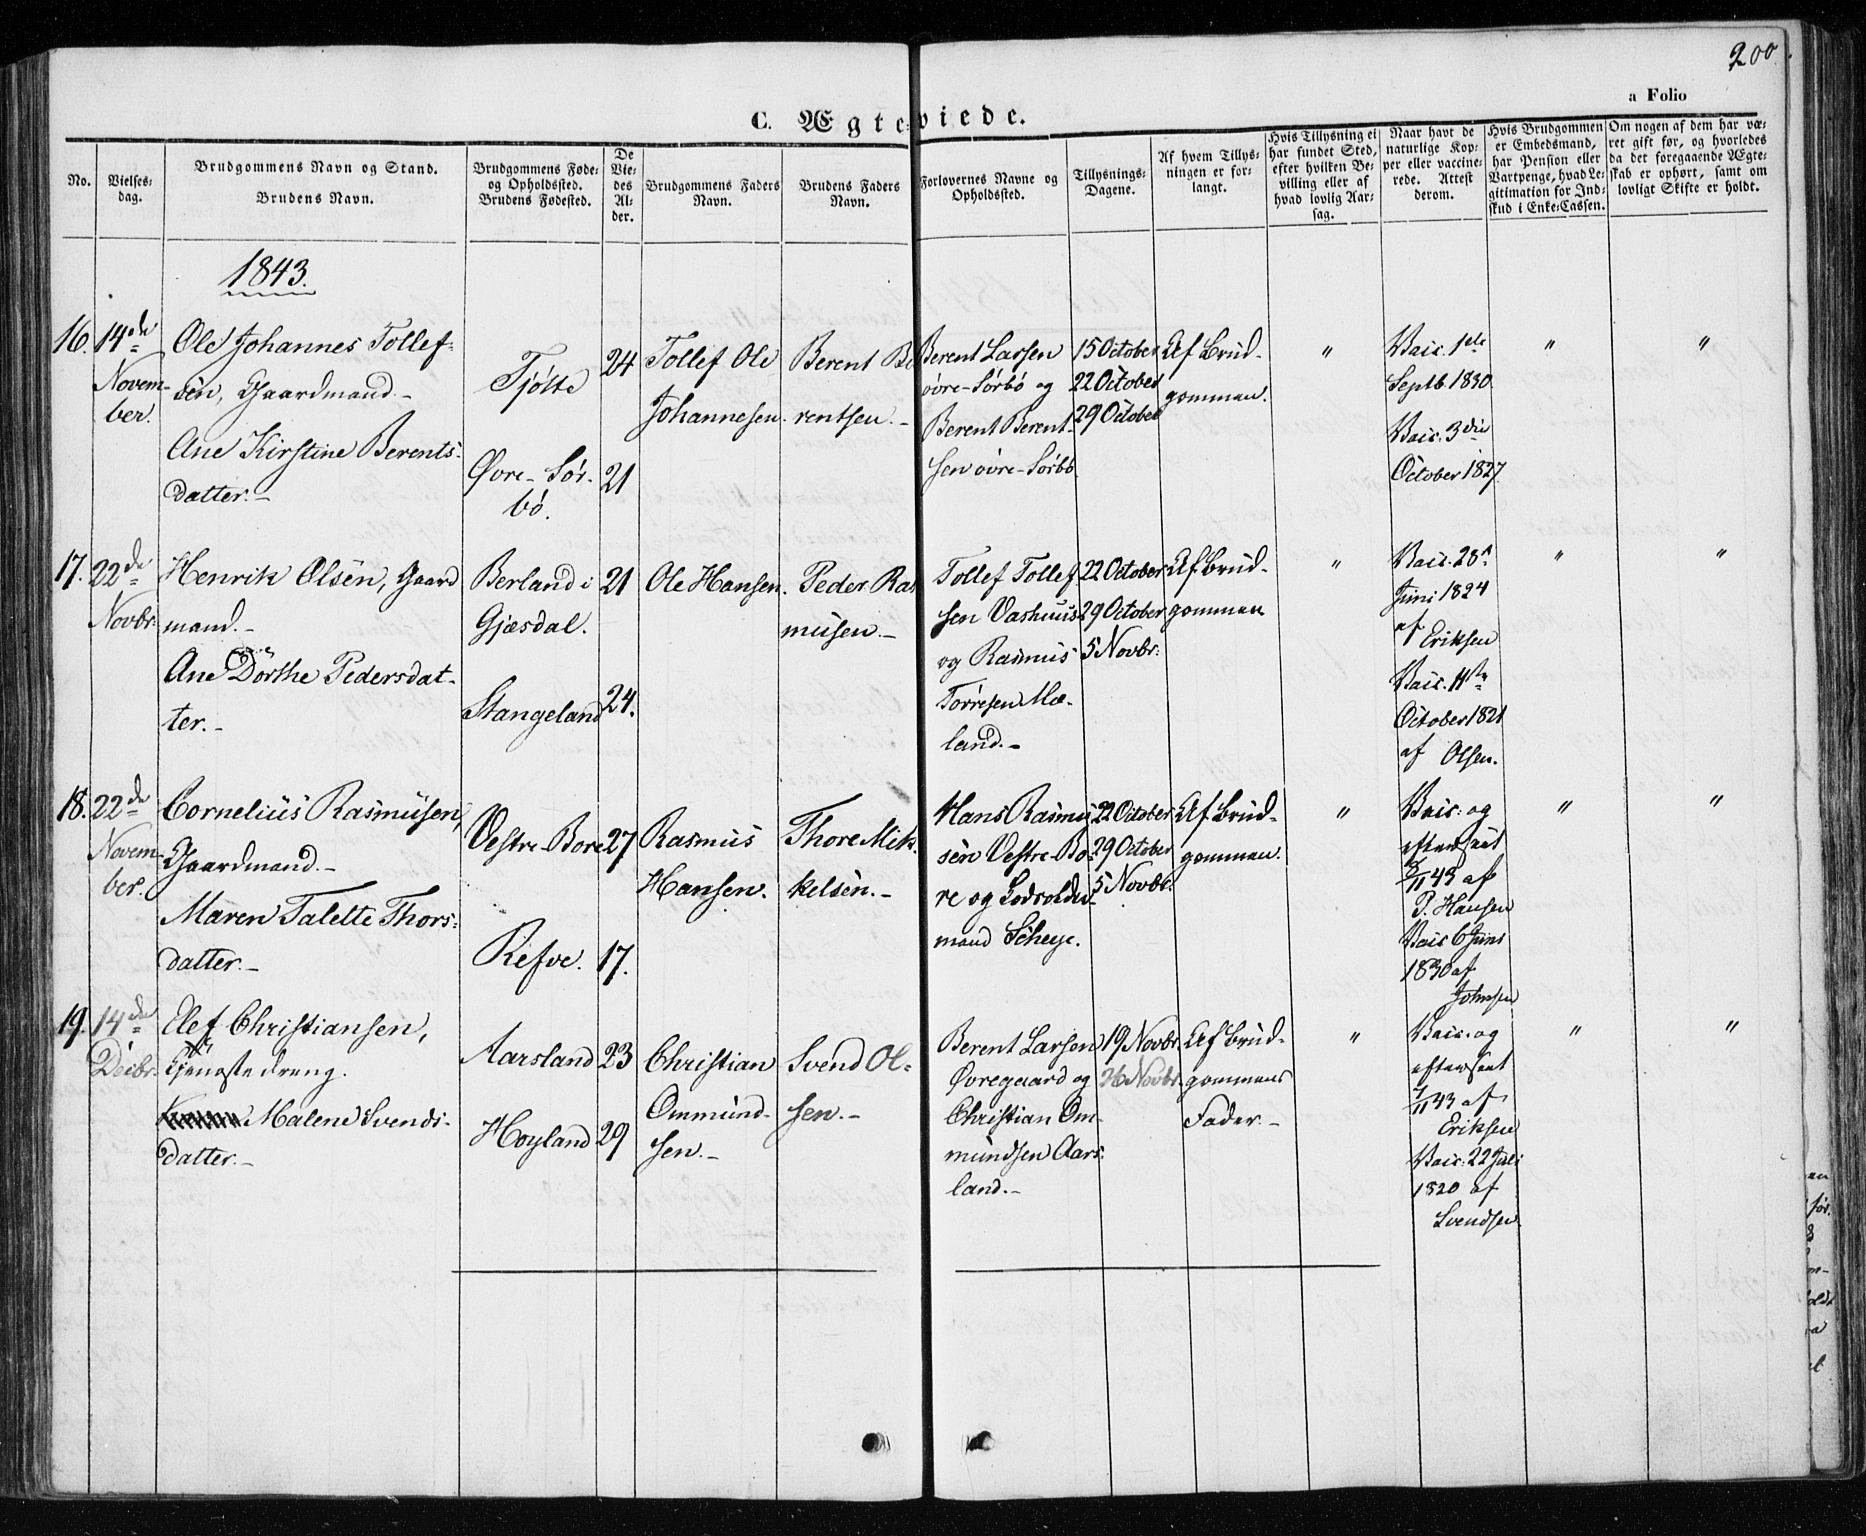 200
a Folio
C. Ægteviede.
No.
Vielses-
dag.
Brudgommens Navn og Stand.
Brudens Navn.
Brudgommens Føde-
og Opholdssted.
Brudens Fødested.
De
Vie-
des
Al-
der.
Brudgommens Faders
Navn.
Brudens Faders
Navn.
Forlovernes Navne og
Opholdssted.
Tillysnings-
Dagene.
Af hvem Tillys-
ningen er for-
langt.
Hvis Tillysning ei
har fundet Sted,
efter hvilken Be-
villing eller af
hvad lovlig Aar-
sag.
Naar havt de
naturlige Kop-
per eller vaccine-
rede. Attest
derom.
Hvis Brudgommen
er Embedsmand,
har Pension eller
Vartpenge, hvad Le-
gitimation for Ind-
skud i Enke-Cassen.
Om nogen af dem har væ-
ret gift før, og hvorledes
da det foregaaende Ægte-
skab er ophørt, samt om
lovligt Skifte er holdt.
1843.
16.
14de
Novem-
ber.
Ole Johannes Tollef-
sen, Gaardmand.-
Ane Kirstine Berents-
datter.-
Tjötte
Øvre-Sör-
bö.
24
21
Tollef Ole
Johannesen.
Berent Be
rentsen.-
Berent Larsen
övre-Sörbö og
Berent Berent-
sen övre-Sörbö
15 October
22 October
29 October
Af Brud-
gommen.
"
Vaic. 1ste
Septb. 1830.
Vaic. 3die
October 1827.
"
"
17.
22de
Novbr.
Henrik Olsen, Gaard
mand.-
Ane Dorthe Pedersdat-
ter.-
Berland i
Gjæsdal.
Stangeland
21
24.
Ole Hansen.
Peder Ras
musen.-
Tollef Tollef
sen Vashuus
og Rasmus
Törresen Mæ-
land.-
22 October
29 October
5 Novbr:
Af Brud-
gommen
"
Vaic. 28.
Juni 1824
af
Eriksen
Vaic. 11te
October 1821
af Olsen.
"
"
18.
22de
Novem-
ber.
Cornelius Rasmusen,
Gaardmand.-
Maren Talette Thors-
datter.-
Vestre-Bore
Refve.
27
17.
Rasmus
Hansen.
Thore Mik-
kelsen.-
Hans Rasmu
sen Vestre-Bo-
re og
mand Scheje.
22 October
29 October
5 Novbr.
Af Brud-
gommen.
"
Vaic: og
efterseet
/11 43 af
P. Hansen
Vaic 6 Juni
1830 af
Johnsen
"
"
19.
14de
Decbr.
Elef Christiansen,
Tjenestedreng.
Malene Svends-
datter.-
Aarsland
Hoyland
23
29
Christian
Ommund-
sen.-
Svend Ol-
sen.-
Berent Larsen
Øvregaard og
Christian Om-
mundsen Aars-
land.-
19 Novbr.
26 Novbr.
Af Brud-
gommens
Fader.-
"
Vaic. og
efterseet
7/11 43 af
Eriksen
Vaic. 22 Juli
1820 af
Svendsen.
"
"